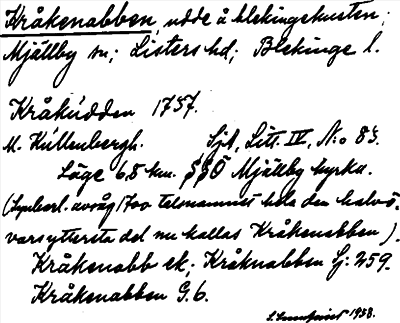 Kråkenabben, udde å blekingekusten;
Mjällby sn; Listers hd; Blekinge l.
Kråkúdden 1757.
M. Kúllenbergh. Sjk, Litt. IV, N:o 85.
Läge 6,8 km. SSÖ Mjällby kyrka.
(Lyckeb. avsåg 1700 telonamnet hela den halvö,
varsyttersta del nu kallas Kråkenabben).
Kråkenabb ek; Kråknabben Sj: 259.
Kråkenabben G. 6.
1938.